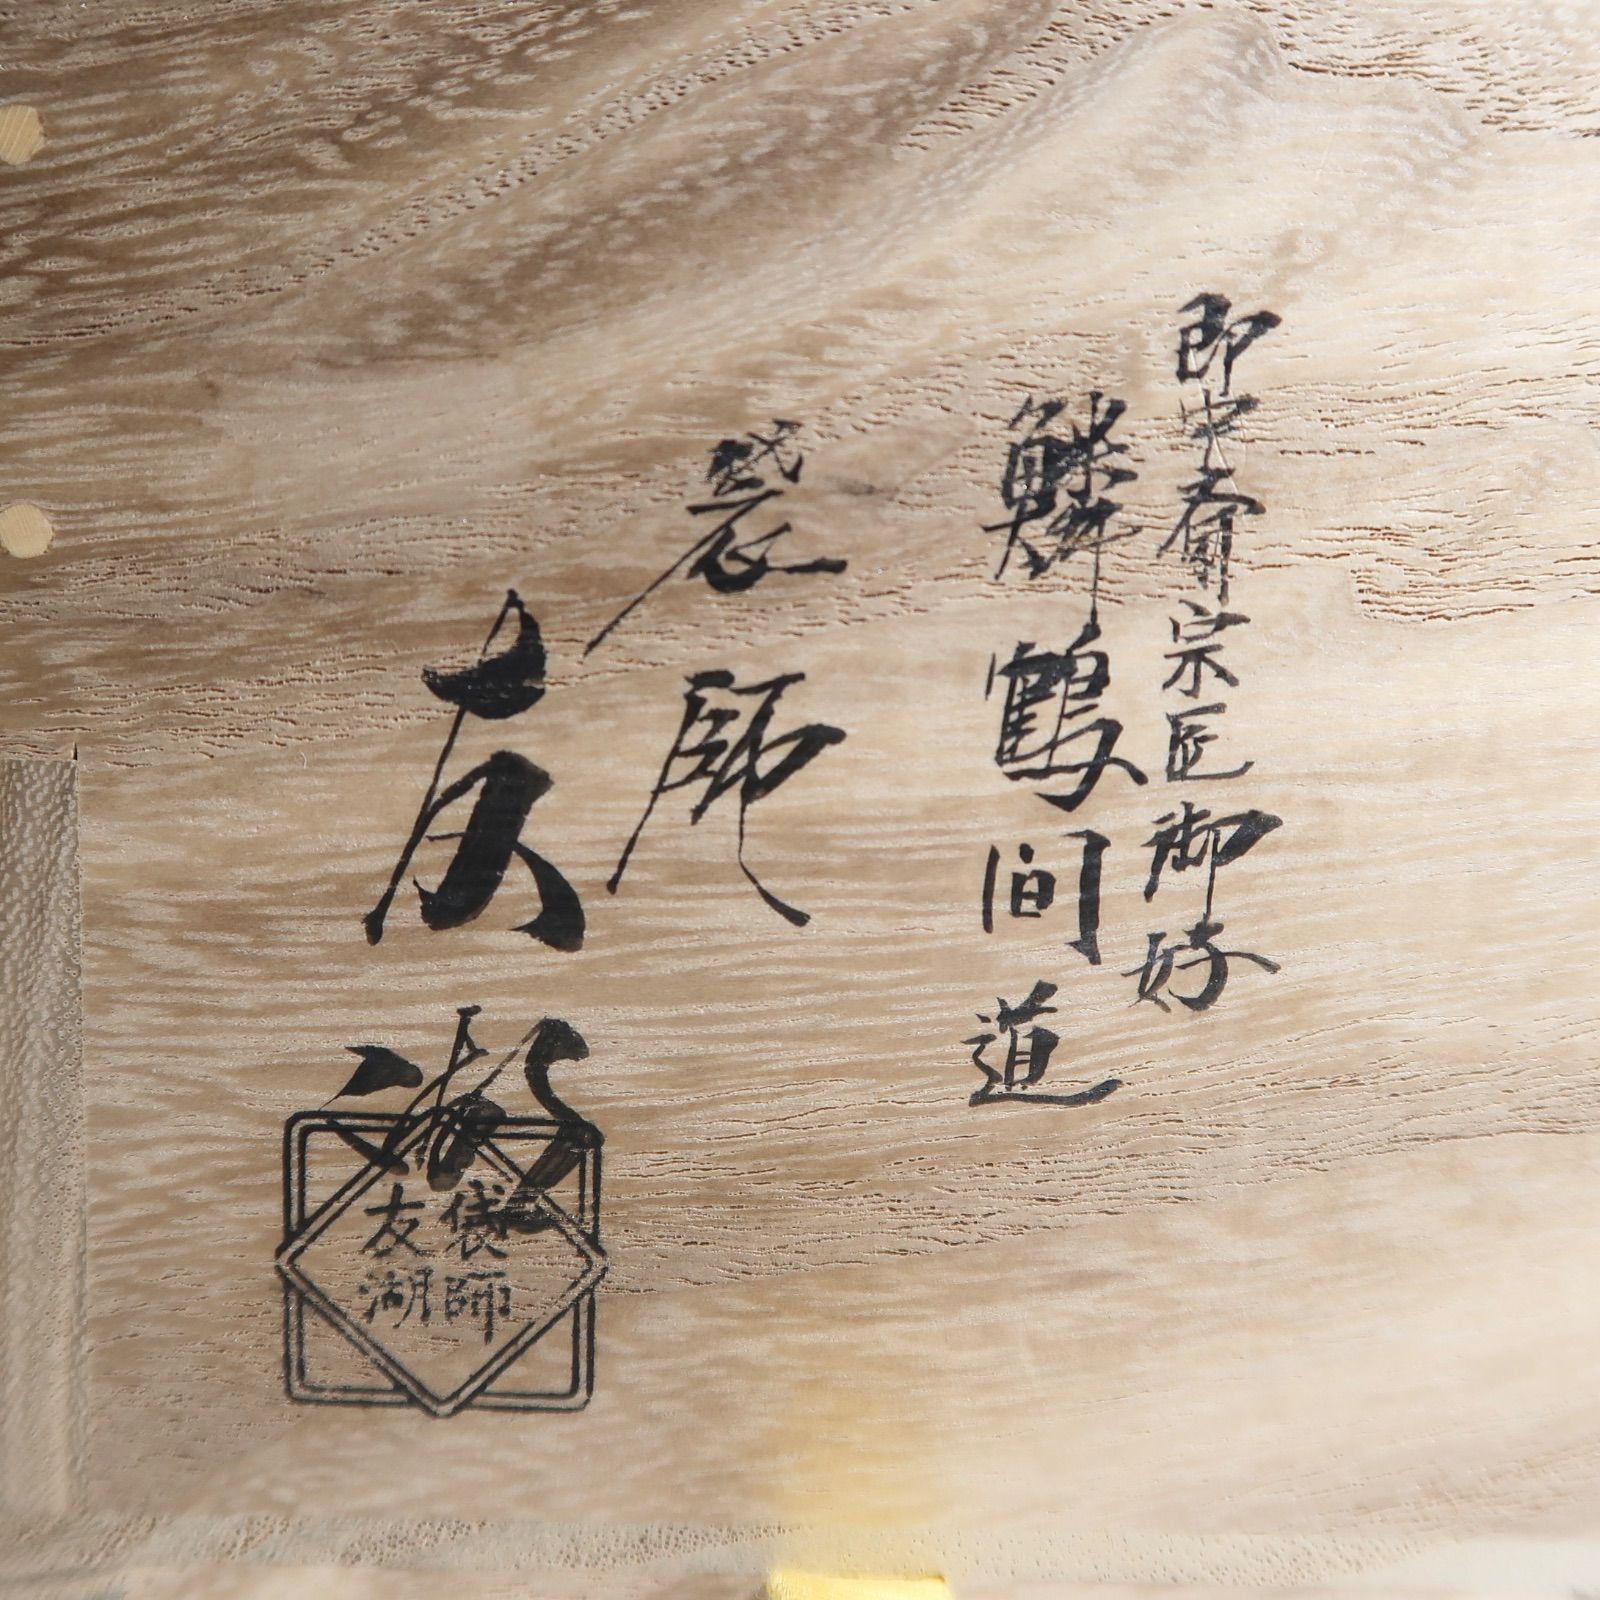 即中斎宗匠御好
鱗鶴間道
袋師
友湖
袋師
友湖